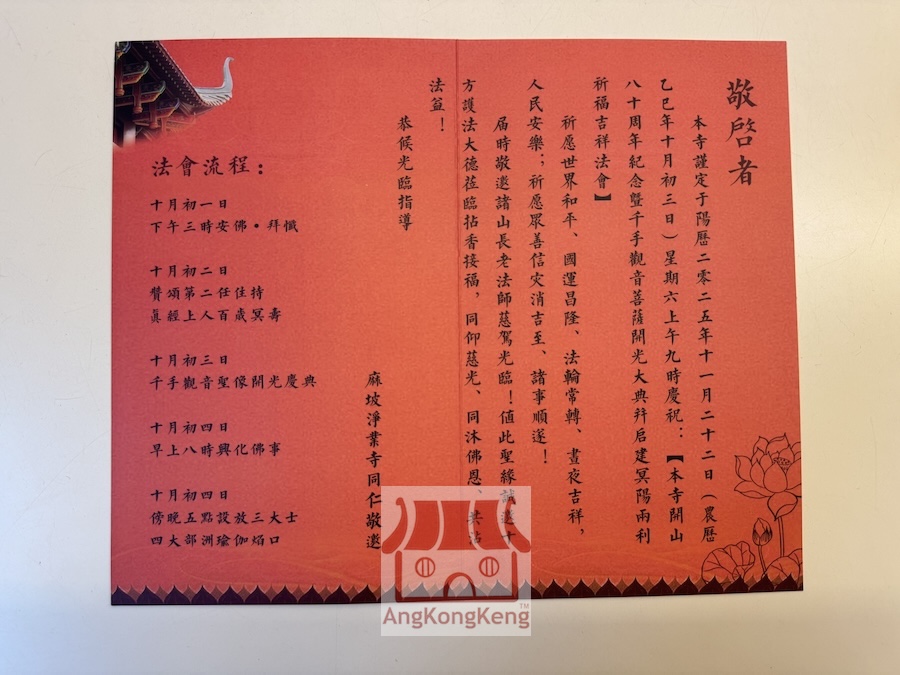 敬啓者
本寺謹定于陽曆二零二五年十一月二十二日（農曆
乙巳年十月初三日）星期六上午九時慶祝：【本寺開山
八十周年紀念暨千手觀音菩薩開光大典幷启建冥陽兩利
祈福吉祥法會】
祈愿世界和平、國運昌隆、法輪常轉、晝夜吉祥，
人民安樂；祈愿眾善信灾消吉至、諸事順遂！
届時敬邀諸山長老法師慈駕光臨！值此聖緣誠邀十
方護法大德莅臨拈香接福，同仰慈光、同沐佛恩、共沾
法益！
恭候光臨指導
麻坡淨業寺同仁敬邀
法會流程：
十月初一日
下午三時安佛•拜懺
十月初二日
贊頌第二任住持
眞經上人百歲冥壽
十月初三日
千手觀音聖像開光慶典
十月初四日
早上八時興化佛事
十月初四日
傍晚五點設放三大士
四大部洲瑜伽焰口
AngKongKeng™